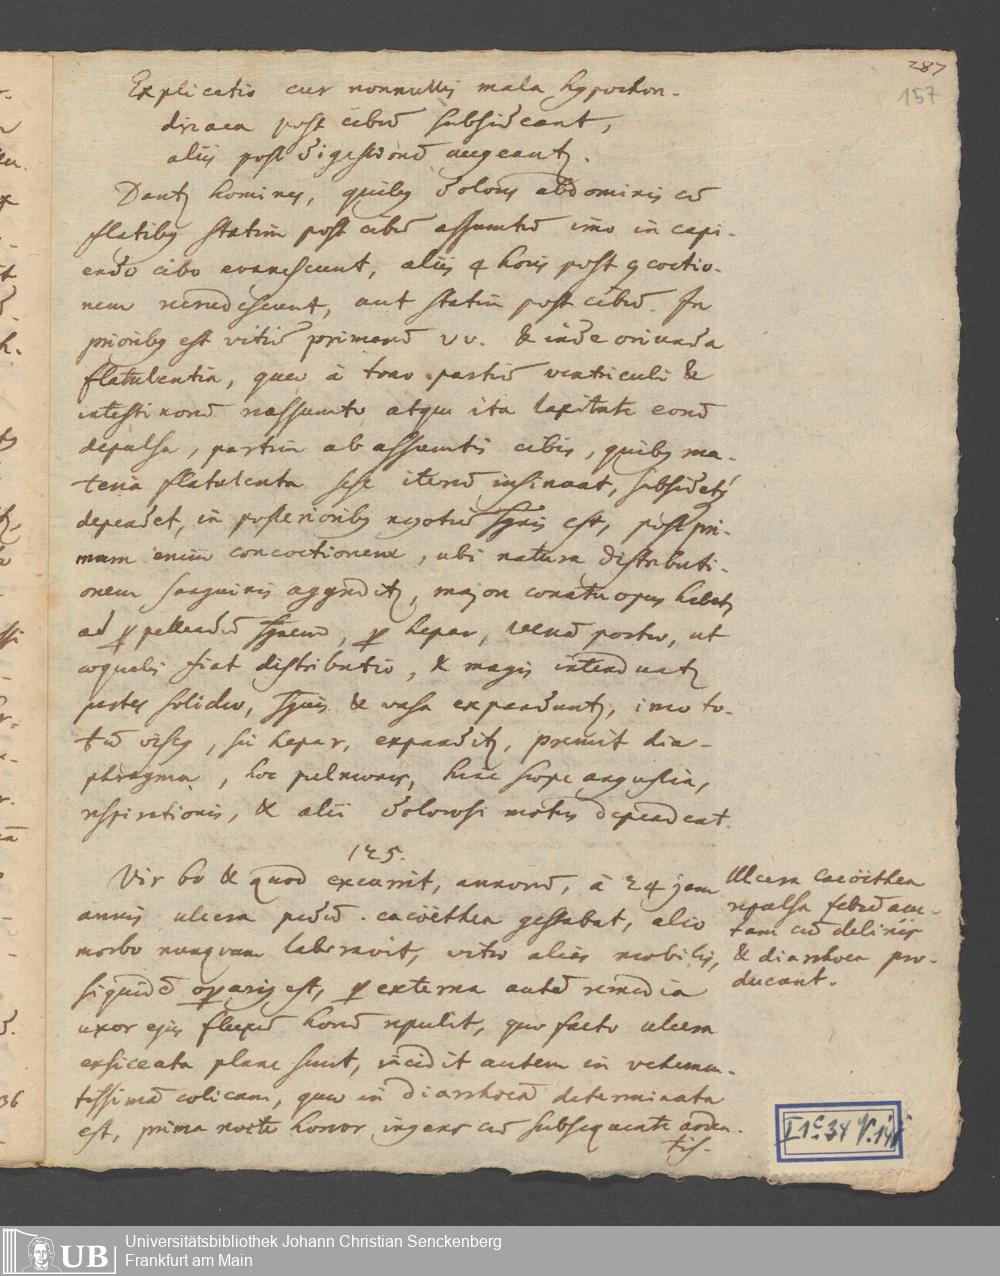 287
157
Explicatio cur nonnullis mala hypochon-
driaca post cibū subsideant,
aliis post digestionē augeantʒ.
Dantʒ homines, quibʒ dolores abdominis cū
flatibʒ statim post cibū assumtū imo in capi-
endo cibo evanescunt, aliis 4 horis post ꝯcoctio-
nem recrudescunt, aut statim post cibū. In
prioribʒ est vitiū primarū vv. & inde oriunda
flatulentia, quae à tono partiū ventriculi &
intestinorū reassumto atque ita laxitate eorū
depulsa, partim ab assumtis cibis, quibʒ ma-
teria flatulenta sese iterū insinuat, subsidet,
dependet, in posterioribʒ negotiū sgnis est, post pri-
mam enim concoctionem, ubi natura distributi-
onem sanguinis aggreditʒ, majori conatu opus habet
ad ꝓpellendū sgnem, ꝑ hepar, venā portae, ut
aequalis fiat distributio, & magis intenduntʒ
partes solidae, sgnis & vasa expanduntʒ, imo to-
tū viscʒ, sic hepar, expanditʒ, premit dia-
phragma, hoc pulmones, hinc saepe angustia,
respirationis, & alii dolorosi motus dependeat.
125.
Vir 60 & quod excurrit, annorū, à 24 jam
annis ulcera pedū cacöethea gestabat, alio
morbo nunquam laboravit, vitro alias mobilis,
siquidē operariʒ est, ꝑ externa autē remedia
uxor ejus fluxū horū repulit, quo facto ulcera
exsiccata plane sunt, incidit autem in vehemen-
tissimā colicam, quae in diarrhoeā determinata
est, prima nocte horror ingens cū subsequente arden-
tis-
Ulcera cacöethea
repulsa febrē acu-
tam cū deliriis
& diarrhoea pro-
ducunt.
36
Universitätsbibliothek Johann Christian Senckenberg
Frankfurt am Main
UB